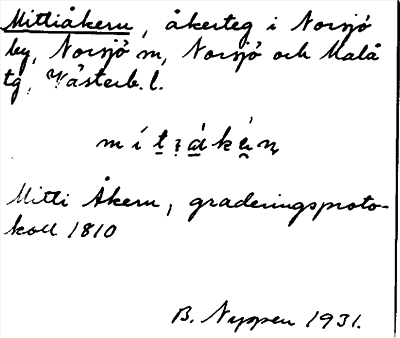 Mittiåkern, åkerteg i Norsjö
by, Norsjö sn, Norsjö och Malå
tg, Västerb. l.
Mitti Åkern, graderingsproto-
koll 1810
B. Nyppen 1931.